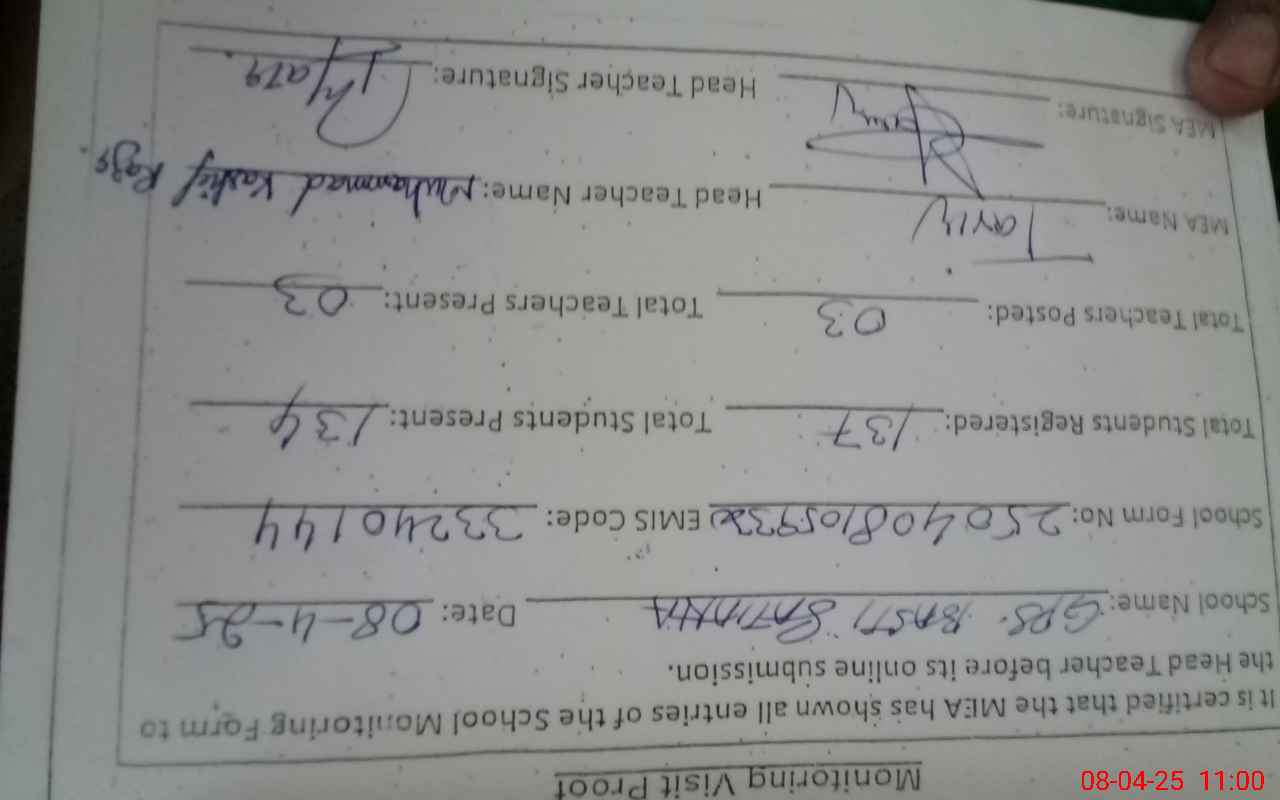 Monitoring Visit Proof
It is certified that the MEA has shown all entries of the School Monitoring Form to
the Head Teacher before its online submission.
School Name: GPS. BASTI Date: 08-4-25
School Form No: EMIS Code: 33240144
Total Students Registered: 137 Total Students Present: 134
Total Teachers Posted: 03 Total Teachers Present: 03
MEA Name: Head Teacher Name: Muhammad Kashif Raza.
MEA Signature: Head Teacher Signature:
08-04-25 11:00